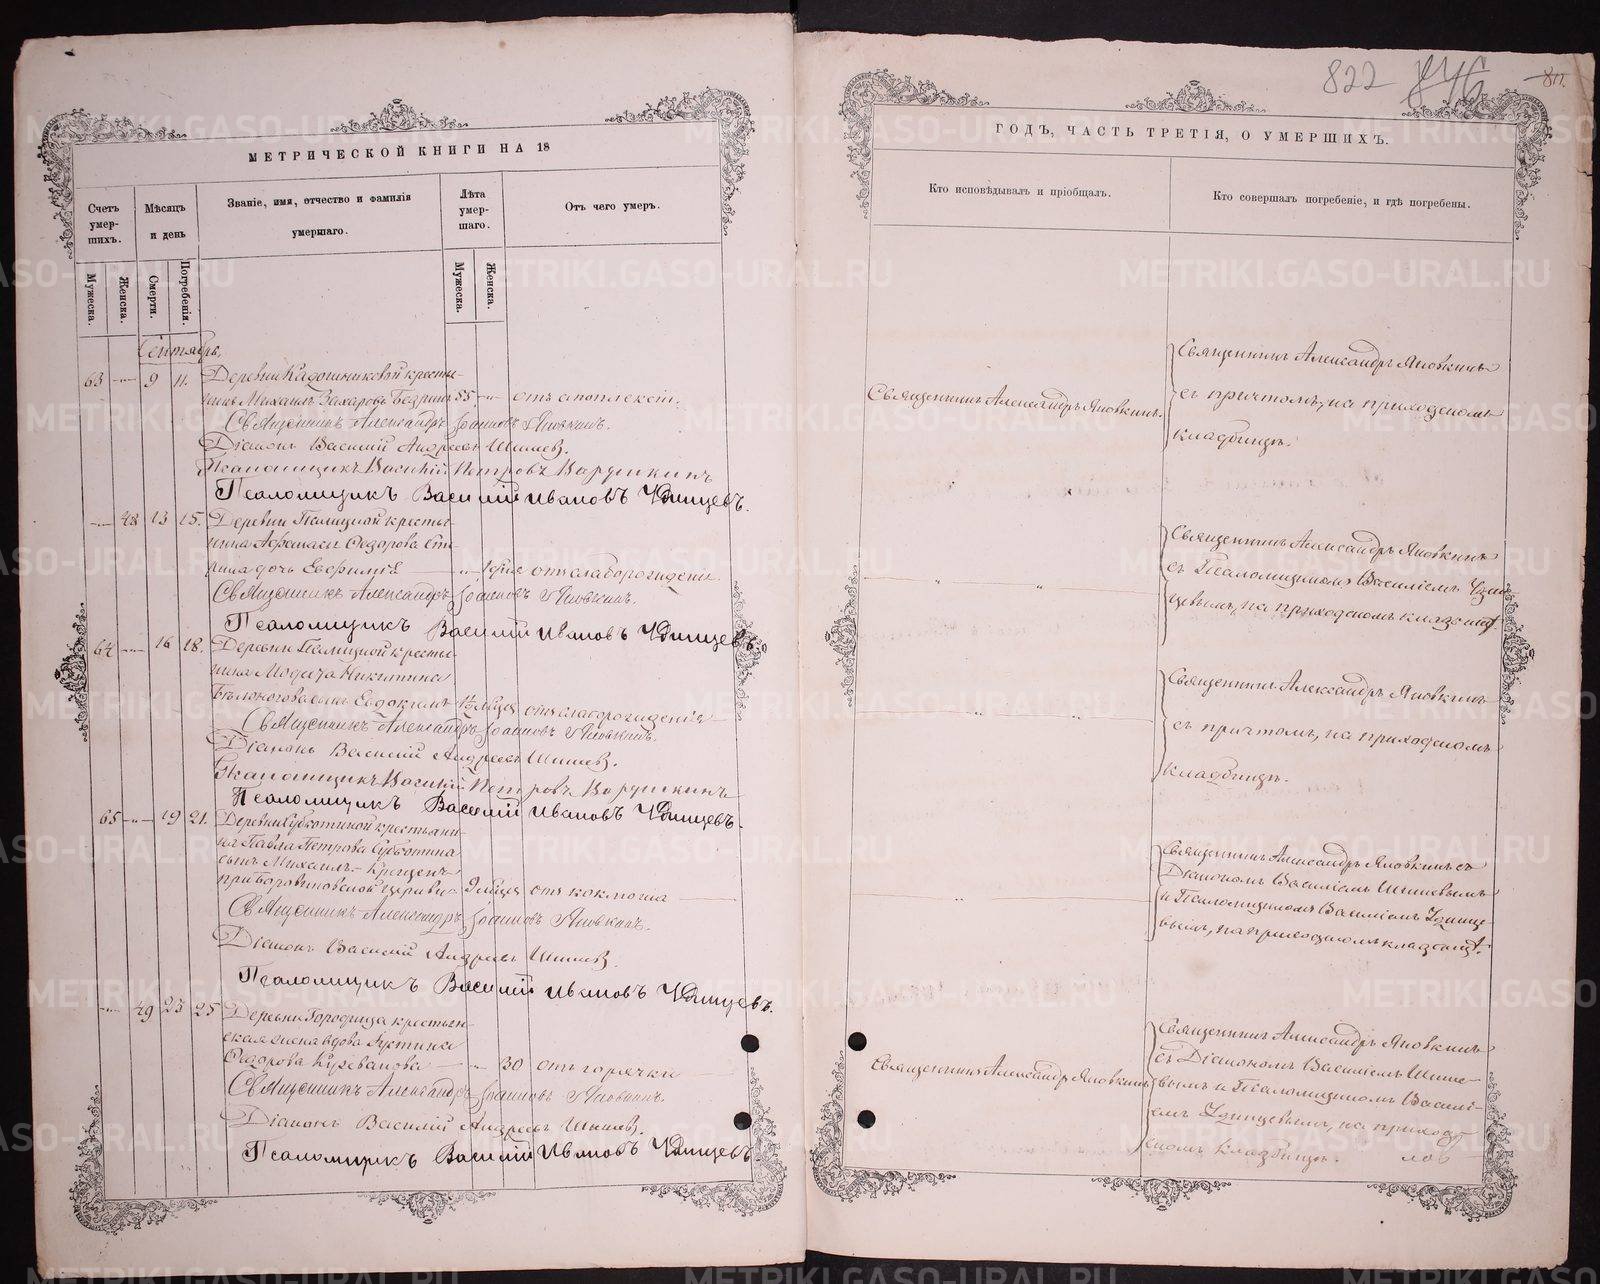 822 846 811.
МЕТРИЧЕСКОЙ КНИГИ НА 18
Счетъ умер-шихъ.
Мужеска.
Женска.
Мѣсяцъ и день
Смерти.
Погребенія.
Званіе, имя, отчество и фамилія умершаго.
Лѣта умер-шаго.
Мужеска.
Женска.
Отъ чего умеръ.
Сентябрь.
63 — 9 11. Деревни крестья-
нинъ Михаилъ Захаровъ 55 — отъ апоплексіи.
Священникъ Александръ Іоанновъ Яновкинъ.
Діаконъ Василій Андреевъ Шишев.
Псаломщикъ Василій Петровъ Варушкинъ
Псаломщикъ Василій Ивановъ
— 48 13 15. Деревни крестья-
нина Афанасія Федорова
дочь Евфимія — отъ слаборожденія
Священникъ Александръ Іоанновъ Яновкинъ.
Псаломщикъ Василій Ивановъ
64 — 16 18. Деревни крестья-
нина Никитина
Бѣлоногова сынъ Евдокимъ отъ слаборожденія
Священникъ Александръ Іоанновъ Яновкинъ.
Діаконъ Василій Андреевъ Шишев.
Псаломщикъ Василій Петровъ Варушкинъ
Псаломщикъ Василій Ивановъ
65 — 19 21. Деревни Субботиной крестьяни-
на Павла Петрова Субботина
сынъ Михаилъ. Крещенъ
при церкви 9 мѣсяц отъ коклюша
Священникъ Александръ Іоанновъ Яновкинъ.
Діаконъ Василій Андреевъ Шишев.
Псаломщикъ Василій Ивановъ
— 49 23 25 Деревни Городища крестьян-
ская жена вдова Іустина
Федорова — 30 отъ горячки
Священникъ Александръ Іоанновъ Яновкинъ.
Діаконъ Василій Андреевъ Шишев.
Псаломщикъ Василій Ивановъ
ГОДЪ, ЧАСТЬ ТРЕТІЯ, О УМЕРШИХЪ.
Кто исповѣдывалъ и пріобщалъ.
Кто совершалъ погребеніе, и гдѣ погребены.
Священникъ Александръ Яновкинъ.
Священникъ Александръ Яновкинъ
съ причтомъ, на приходскомъ
кладбищѣ.
Священникъ Александръ Яновкинъ
съ Псаломщикомъ Василіемъ
цевымъ, на приходскомъ кладбищѣ.
Священникъ Александръ Яновкинъ
съ причтомъ, на приходскомъ
кладбищѣ.
Священникъ Александръ Яновкинъ съ
Діакономъ Василіемъ Шишевымъ
и Псаломщикомъ Василіемъ
вымъ, на приходскомъ кладбищѣ.
Священникъ Александръ Яновкинъ
Священникъ Александръ Яновкинъ
съ Діакономъ Василіемъ Шише-
вымъ и Псаломщикомъ Васили-
емъ на приход-
скомъ кладбищѣ.
METRIKI.GASO-URAL.RU